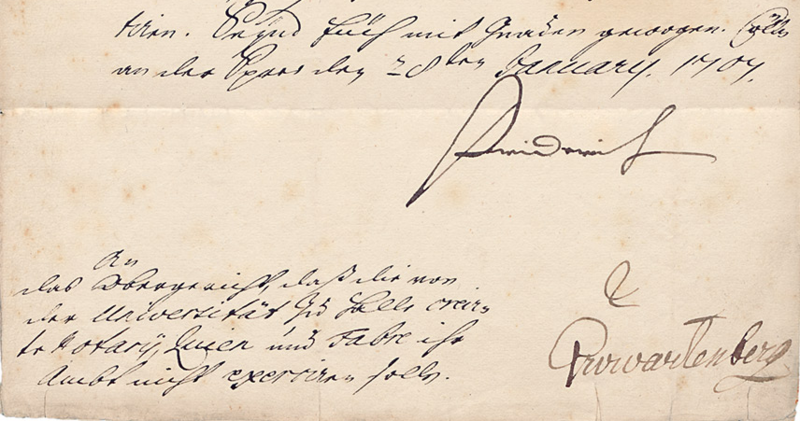 tiren. Seynd Euch mit Gnaden gewogen. Cölln
an der Spree den 28ten January. 1707.
Friderich
An
das Obergericht, daß die von
der Universität zu Halle creir-
te Notarij, und Fabre ihr
Ambt nicht exerciren solle.
Grvwartenberg